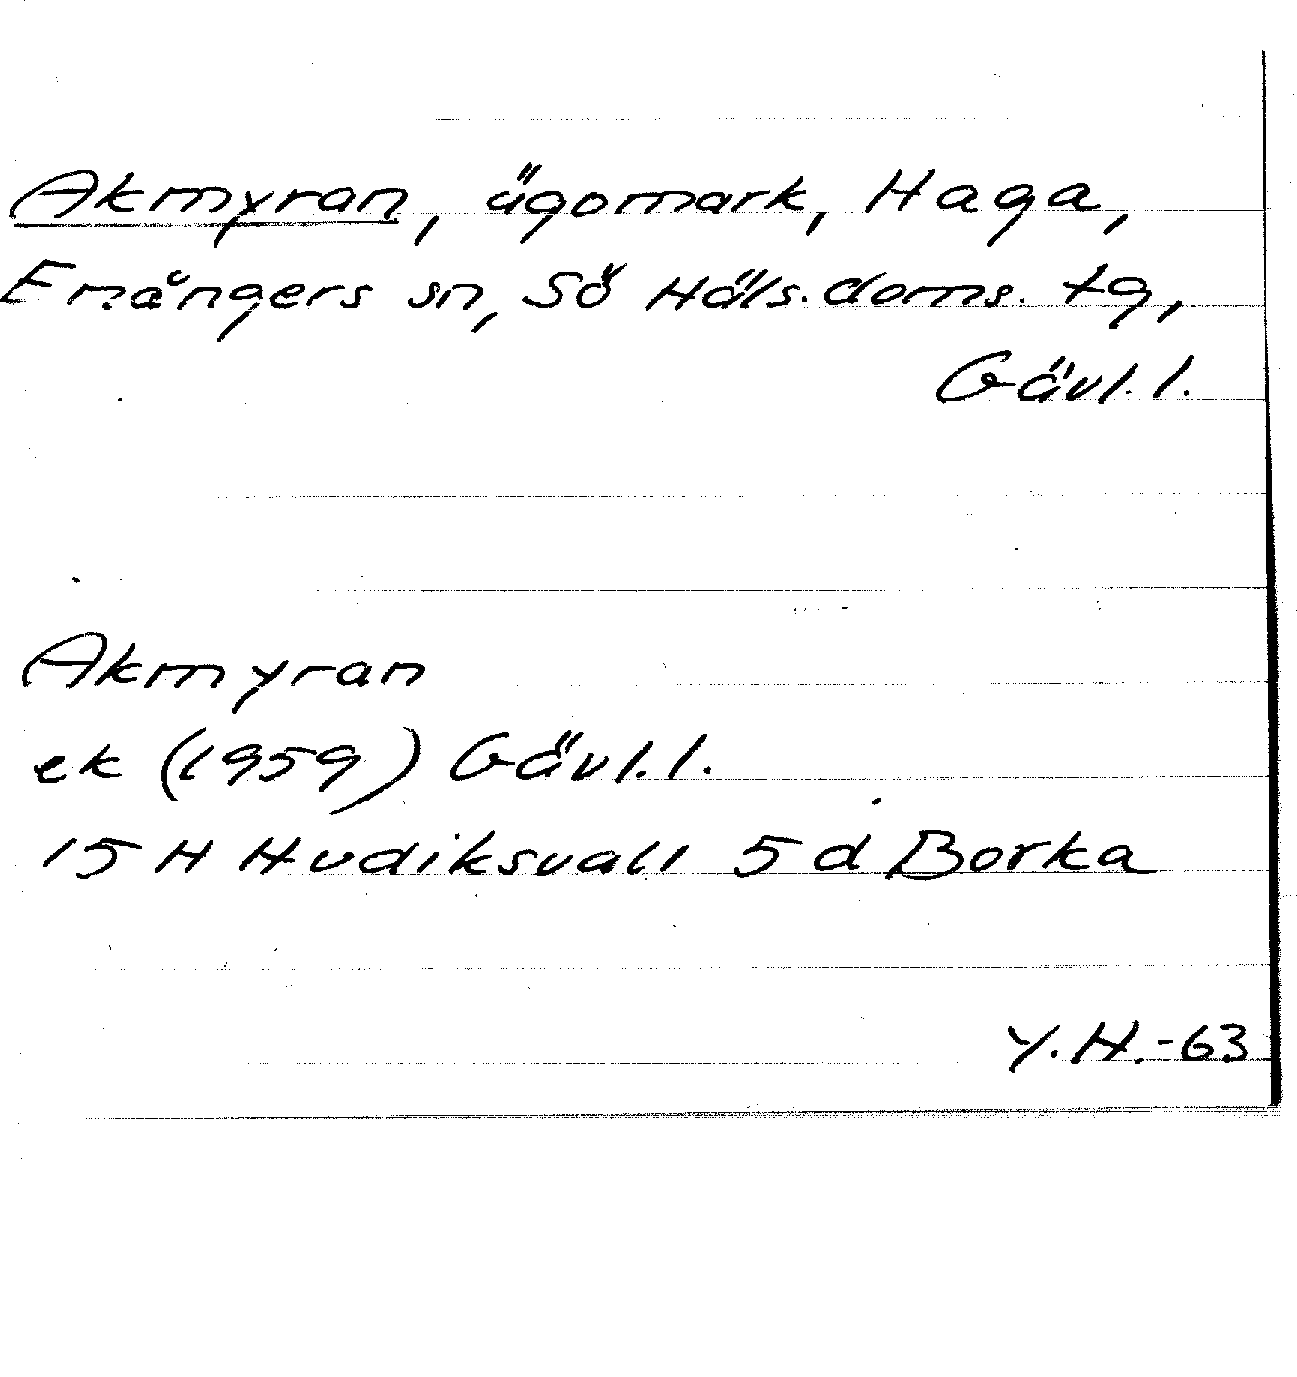 Akmyran, ägomark, Haga,
Enångers sn, Sö Häls. doms. tg,
Gävl. l.
Akmyran
ek (1959) Gävl. l.
15 H Hudiksvall 5 d Borka
Y. H. -63